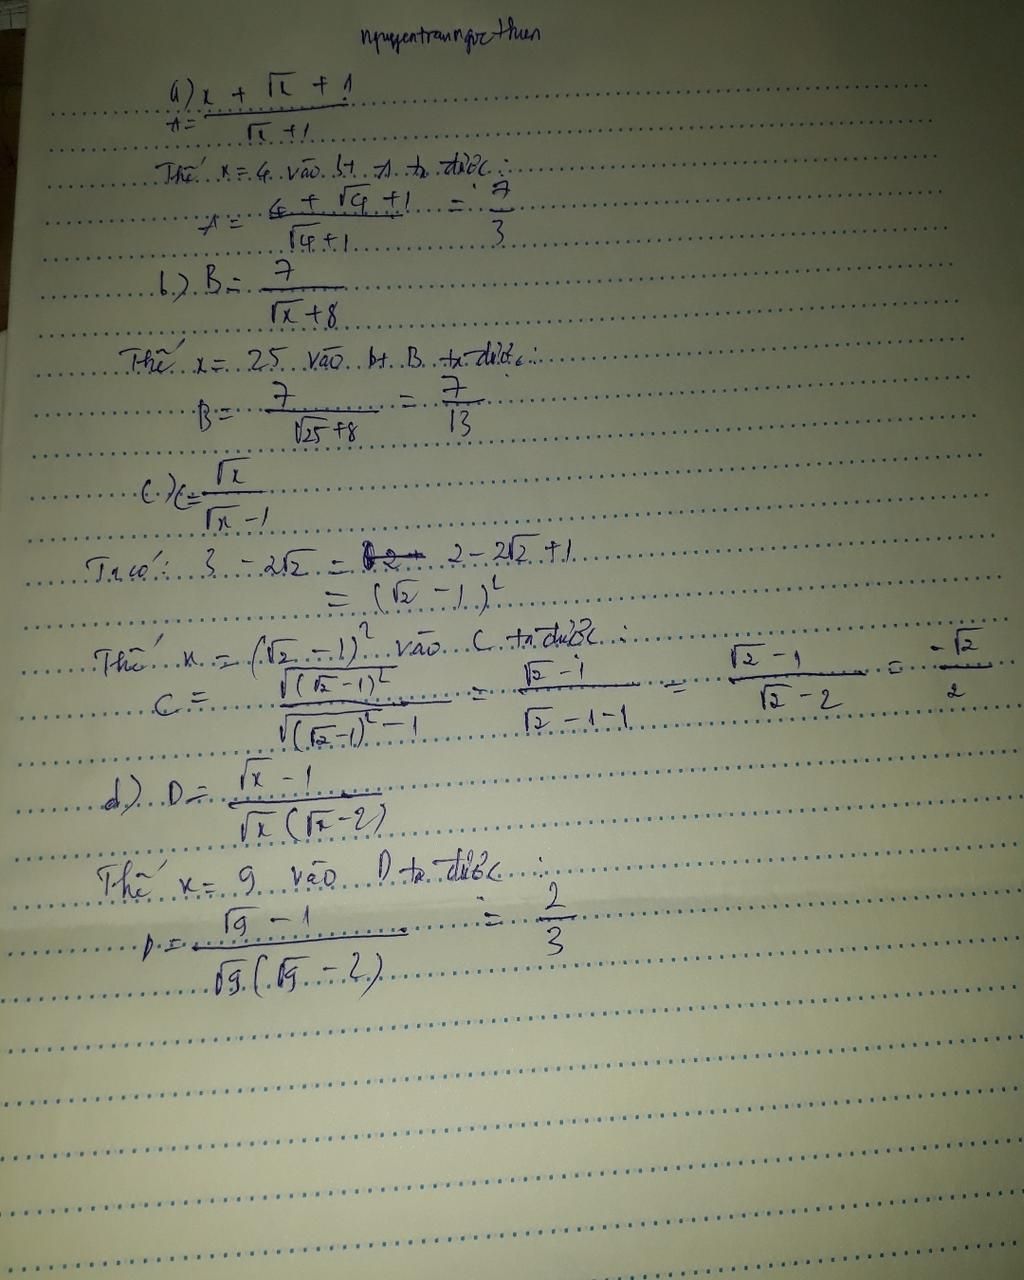 nguyentranngocthien
a) A = (x + √x + 1)/(√x + 1)
Thế x = 4 vào bt A ta được:
A = (4 + √4 + 1)/(√4 + 1) = 7/3
b.) B = 7/(√x + 8)
Thế x = 25 vào bt B ta được:
B = 7/(√25 + 8) = 7/13
c.) C = √x/(√x - 1)
Ta có: 3 - 2√2 = 2 - 2√2 + 1
= (√2 - 1)²
Thế x = (√2 - 1)² vào C ta được:
C = √((√2 - 1)²)/(√((√2 - 1)²) - 1) = (√2 - 1)/(√2 - 1 - 1) = (√2 - 1)/(√2 - 2) = -√2/2
d.) D = (√x - 1)/(√x (√x - 2))
Thế x = 9 vào D ta được:
D = (√9 - 1)/(√9 (√9 - 2)) = 2/3